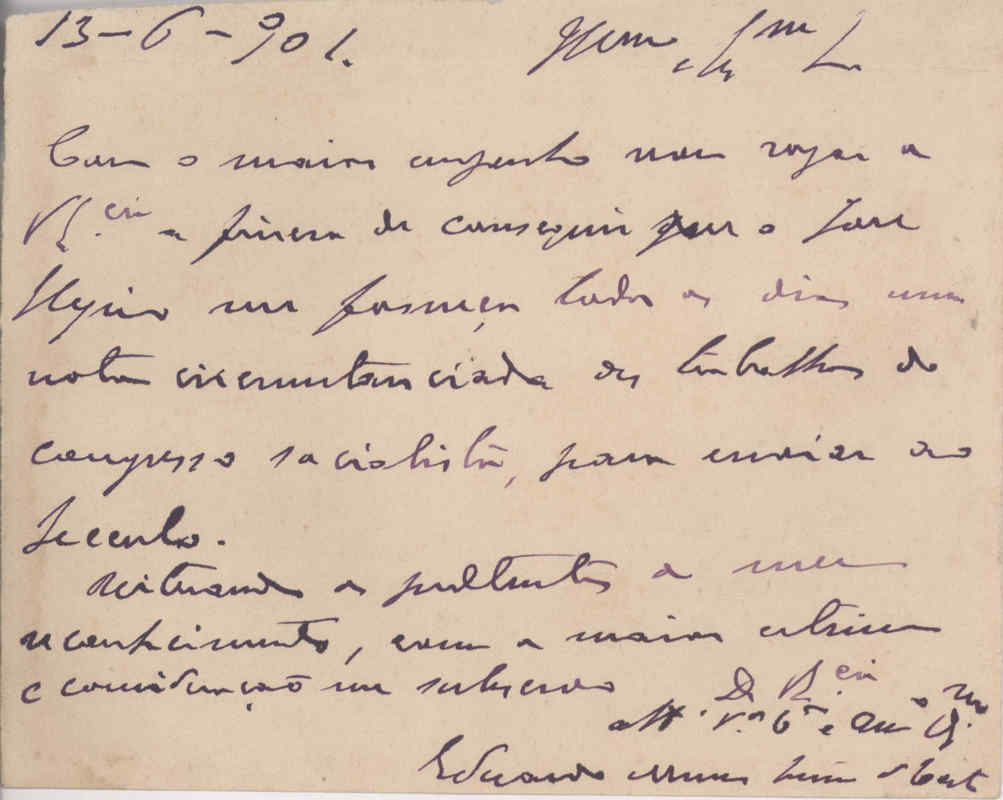 13-6-901.
Com o maior empenho venho rogar a
V. Ex.cia a fineza de conseguir que o José
me forneça todos os dias uma
nota circumstanciada dos trabalhos do
congresso socialista, para enviar ao
Seculo.
Reiterando os protestos do meu
reconhecimento, com a maior estima
e consideração me subscrevo De V. Ex.cia
att.
Eduardo